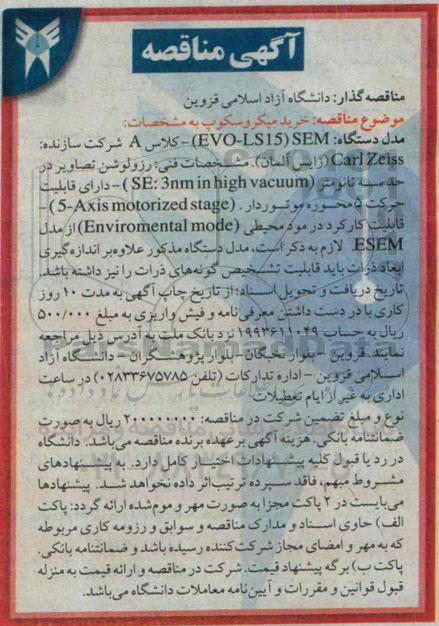 آگهی مناقصه
مناقصه گذار: دانشگاه آزاد اسلامی قزوین
موضوع مناقصه: خرید میکروسکوپ به مشخصات:
مدل دستگاه: EVO-LS15) SEM) - کلاس A شرکت سازنده:
Carl Zeiss (زایس آلمان). مشخصات فنی: رزولوشن تصاویر در
حد سه نانومتر (SE: 3nm in high vacuum) - دارای قابلیت
حرکت ۵ محوره موتوردار . (5-Axis motorized stage) -
قابلیت کارکرد در مود محیطی (Enviromental mode) از مدل
ESEM. لازم به ذکر است، مدل دستگاه مذکور علاوه بر اندازه گیری
ابعاد ذرات باید قابلیت تشخیص گونه های ذرات را نیز داشته باشد.
تاریخ دریافت و تحویل اسناد: از تاریخ چاپ آگهی به مدت ۱۰ روز
کاری با در دست داشتن معرفی نامه و فیش واریزی به مبلغ ۵۰۰/۰۰۰
ریال به حساب ۱۹۹۳۶۱۱۰۴۹ نزد بانک ملت به آدرس ذیل مراجعه
نمایند. قزوین - بلوار نخبگان - بلوار پژوهشگران - دانشگاه آزاد
اسلامی قزوین - اداره تدارکات (تلفن ۰۲۸۳۳۶۷۵۷۸۵) در ساعت
اداری به غیر از ایام تعطیلات
نوع و مبلغ تضمین شرکت در مناقصه: ۲۰۰۰۰۰۰۰۰ ریال به صورت
ضمانتنامه بانکی. هزینه آگهی بر عهده برنده مناقصه می باشد. دانشگاه
در رد یا قبول کلیه پیشنهادات اختیار کامل دارد. به پیشنهادهای
مشروط مبهم، فاقد سپرده ترتیب اثر داده نخواهد شد. پیشنهادها
می بایست در ۲ پاکت مجزا به صورت مهر و موم شده ارائه گردد: پاکت
الف) حاوی اسناد و مدارک مناقصه و سوابق و رزومه کاری مربوطه
که به مهر و امضای مجاز شرکت کننده رسیده باشد و ضمانتنامه بانکی.
پاکت ب) برگه پیشنهاد قیمت. شرکت در مناقصه و ارائه قیمت به منزله
قبول قوانین و مقررات و آیین نامه معاملات دانشگاه می باشد.